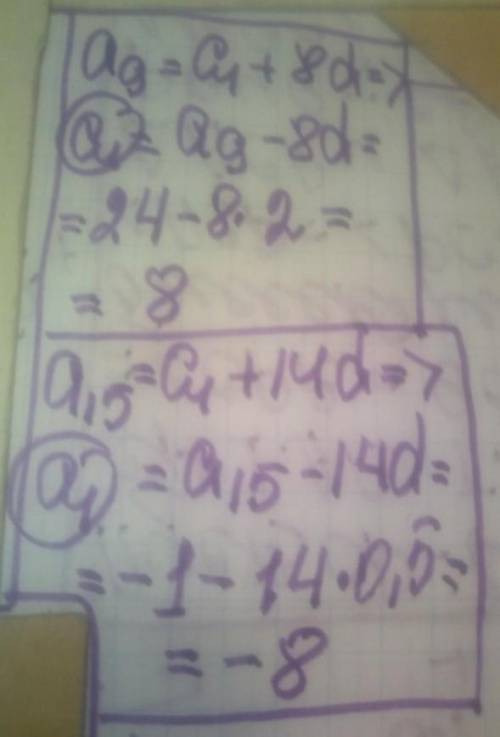 a₉ = a₁ + 8d =>
a₁ = a₉ - 8d =
= 24 - 8 · 2 =
= 8
a₁₅ = a₁ + 14d =>
a₁ = a₁₅ - 14d =
= -1 - 14 · 0,5 =
= -8